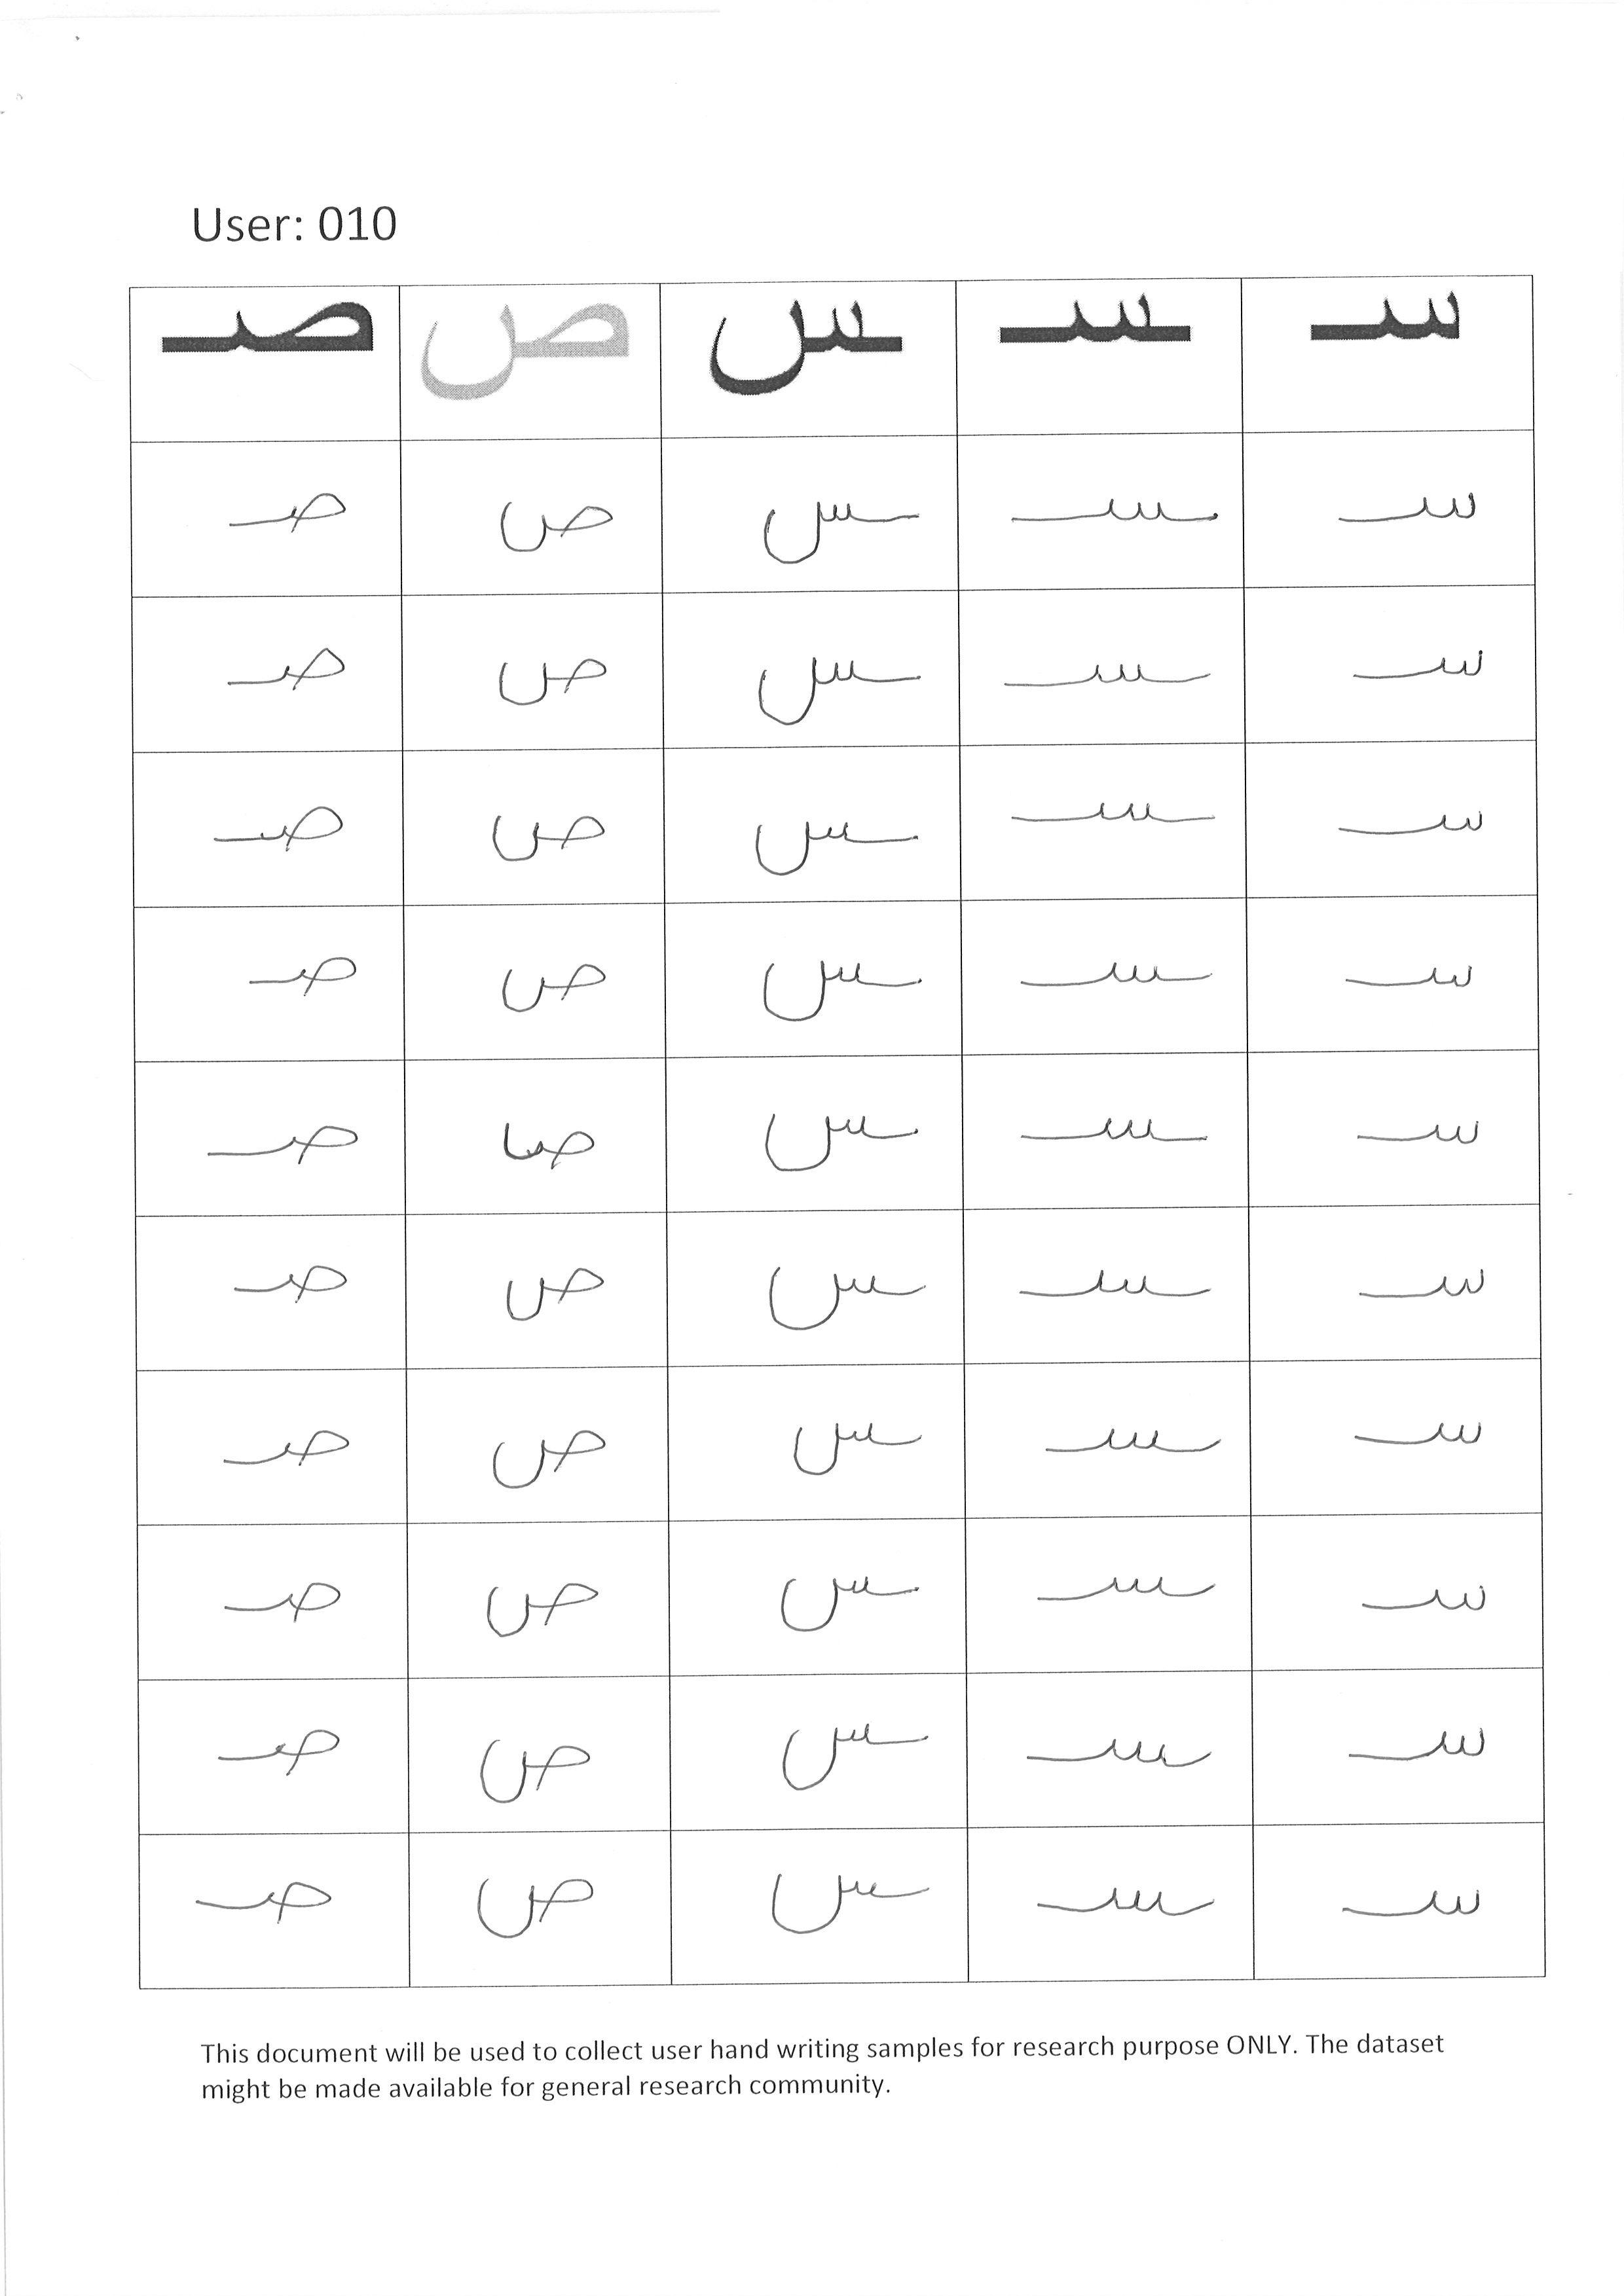 User: 010
سـ ـسـ ـس ص صـ
سـ ـسـ ـس ص صـ
سـ ـسـ ـس ص صـ
سـ ـسـ ـس ص صـ
سـ ـسـ ـس ص صـ
سـ ـسـ ـس ص صـ
سـ ـسـ ـس ص صـ
سـ ـسـ ـس ص صـ
سـ ـسـ ـس ص صـ
سـ ـسـ ـس ص صـ
سـ ـسـ ـس ص صـ
This document will be used to collect user hand writing samples for research purpose ONLY. The dataset
might be made available for general research community.